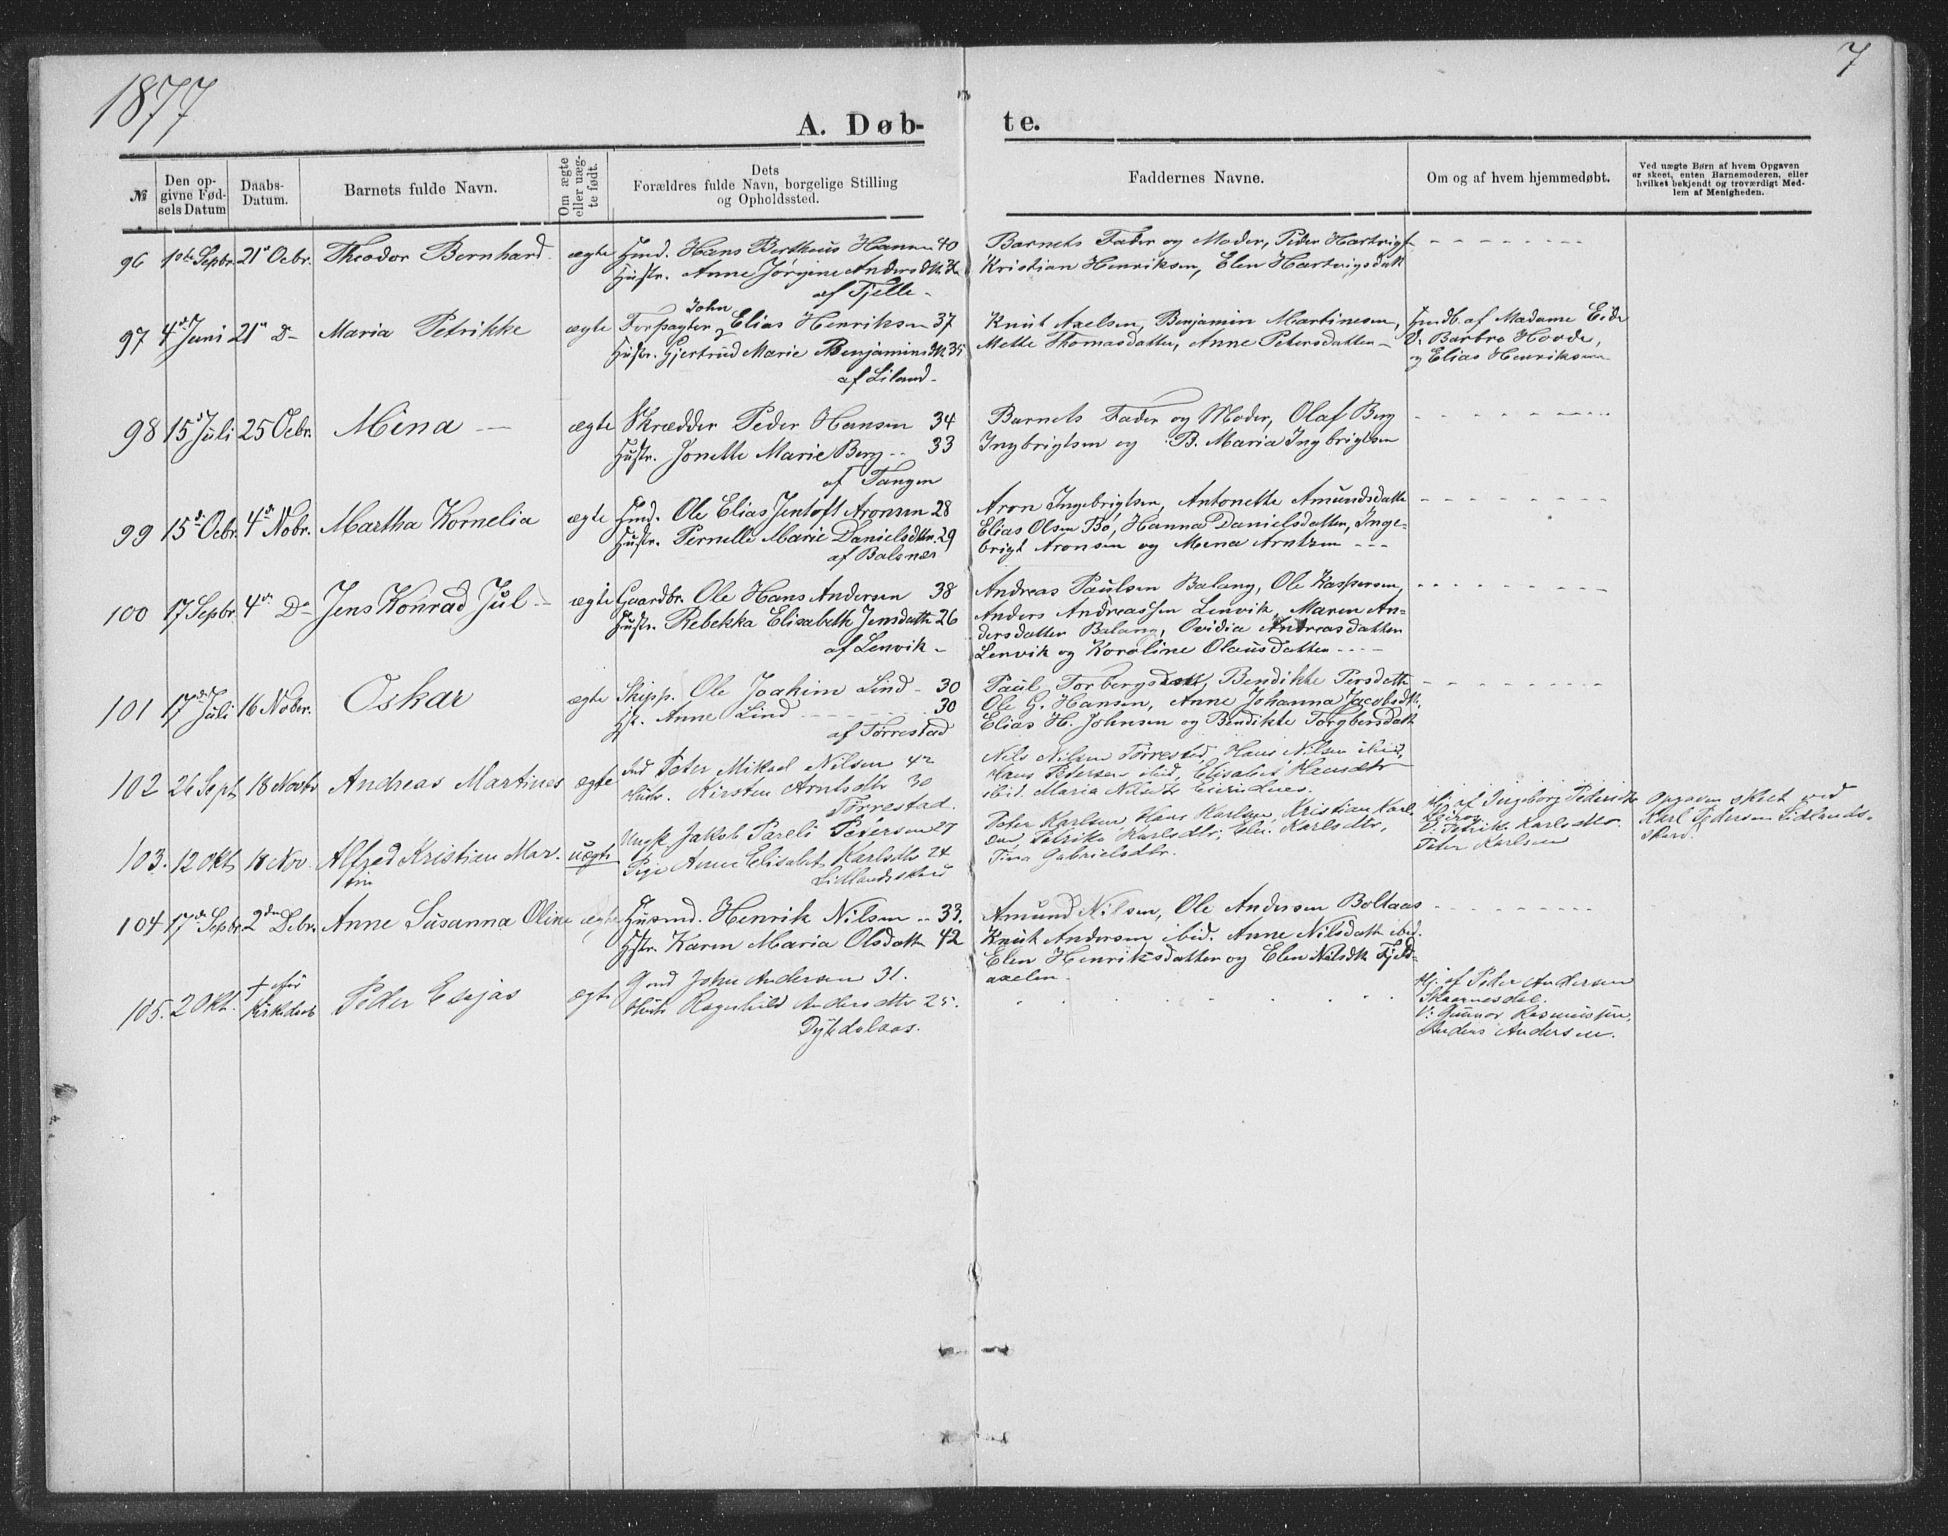 1877
7
A. Døb-
te.
№
Den op-
givne Fød-
sels Datum
Daabs-
Datum.
Barnets fulde Navn.
Om ægte
eller uæg-
te født.
Dets
Forældres fulde Navn, borgelige Stilling
og Opholdssted.
Faddernes Navne.
Om og af hvem hjemmedøbt.
Ved uægte Børn af hvem Opgaven
er skeet, enten Barnemoderen, eller
hvilket bekjendt og troværdigt Med-
lem af Menigheden.
96 Sepbr. 21 Ocbr. Theodor Bernhard ægte Hans Bertheus 40
Hustr. Anne Jørgine
af Fjelle -
Barnets Fader og Moder, Peder
Kristian Henriksen, Elen
97 4 Juni 21 D- Maria Petrikke ægte Forpagter John Elias Henriksen 37
Hustr. Gjertrud Marie 35
af Liland -
Knut Axelsen, Benjamin Martinesen,
Mette Thomasdatter, Anne Petersdatter -
af Madame Eide
V. Barbro Hovde,
og Elias Henriksen
98 15 Juli 25 Ocbr. Mina - ægte Skrædder Peder Hansen 34
Hustr. Jonette Marie Berg - - 33
af Tangen
Barnets Fader og Moder, Olaf Berg
Ingbrigtsen og B. Maria Ingbrigtsen
99 15 Ocbr. 4 Nobr. Martha Kornelia ægte Ole Elias Jentoft Aronsen 28
Hustr. Pernelle Marie Danielsdttr. 29
af Balsnes
Aron Ingebrigtsen, Antonette Amundsdatter
Elias Olsen Bø, Hanna Danielsdatter, Inge-
brigt Aronsen og Mina Arntzen - - -
100 17 Sepbr 4 D- Jens Konrad Jul - ægte Gaardbr. Ole Hans Andersen 38
Hustr. Rebekka Elisabeth Jensdattr 26
af Lenvik -
Andreas Paulsen Balang, Ole Kaspersen,
Anders Andreassen Lenvik, Maren An-
dersdatter Balang, Ovidia Andreasdatter
Lenvik og Karoline Olausdatter - - - -
101 17 Juli 16 Nobr. Oskar ægte Skipp. Ole Joachim Lind - 30
Anne Lind 30
af Tørrestad
Paul Bendikte Persdattr
Ole G. Hansen, Anne Johanna
Elias H. Johnsen og Bendikte
102 26 Sept 18 Novbr Andreas Martines ægte Peter Mikael Nilsen 42
Kirsten Arntsdtr 30
Tørrestad.
Nils Nilsen Tørrestad, Hans Nilsen ibid,
Hans Petersen ibid, Elisabet
ibid. Maria
103. 12 Okt 18 Nov. Alfred Kristian Mar- uægte Ungk Jakob Pareli Pedersen 27
tin Pige Anne Elisabet Karlsdtr 24
Lidlandsskard
Peter Karlsen, Hans Karlsen, Kristian Karl-
sen, Petrike Karlsdtr, Karlsdtr,
Tina Gabrielsdtr.
Hj. af Ingeborg
V: Karlsdtr.
Peter Karlsen
Opgaven skeet ved
Karl Pedersen Lidlands-
skard.
104 17 Sepbr. 2 Debr. Anne Susanna Oline ægte Husmd. Henrik Nilsen - - 33.
Hstr. Karen Maria Olsdattr 42
Amund Nilsen, Ole Andersen Boltaas
Knut Andersen ibid. Anne Nilsdattr ibid.
Elen Henriksdatter og Elen Fjeld-
axelen -
105. 2 Okt. + før Kirkedaab Peder Esajas ægte John Andersen 31.
Ragnhild Andersdtr 25.
Hj. af Peder Andersen
V: Gunnar Rasmussen,
Anders Andersen.